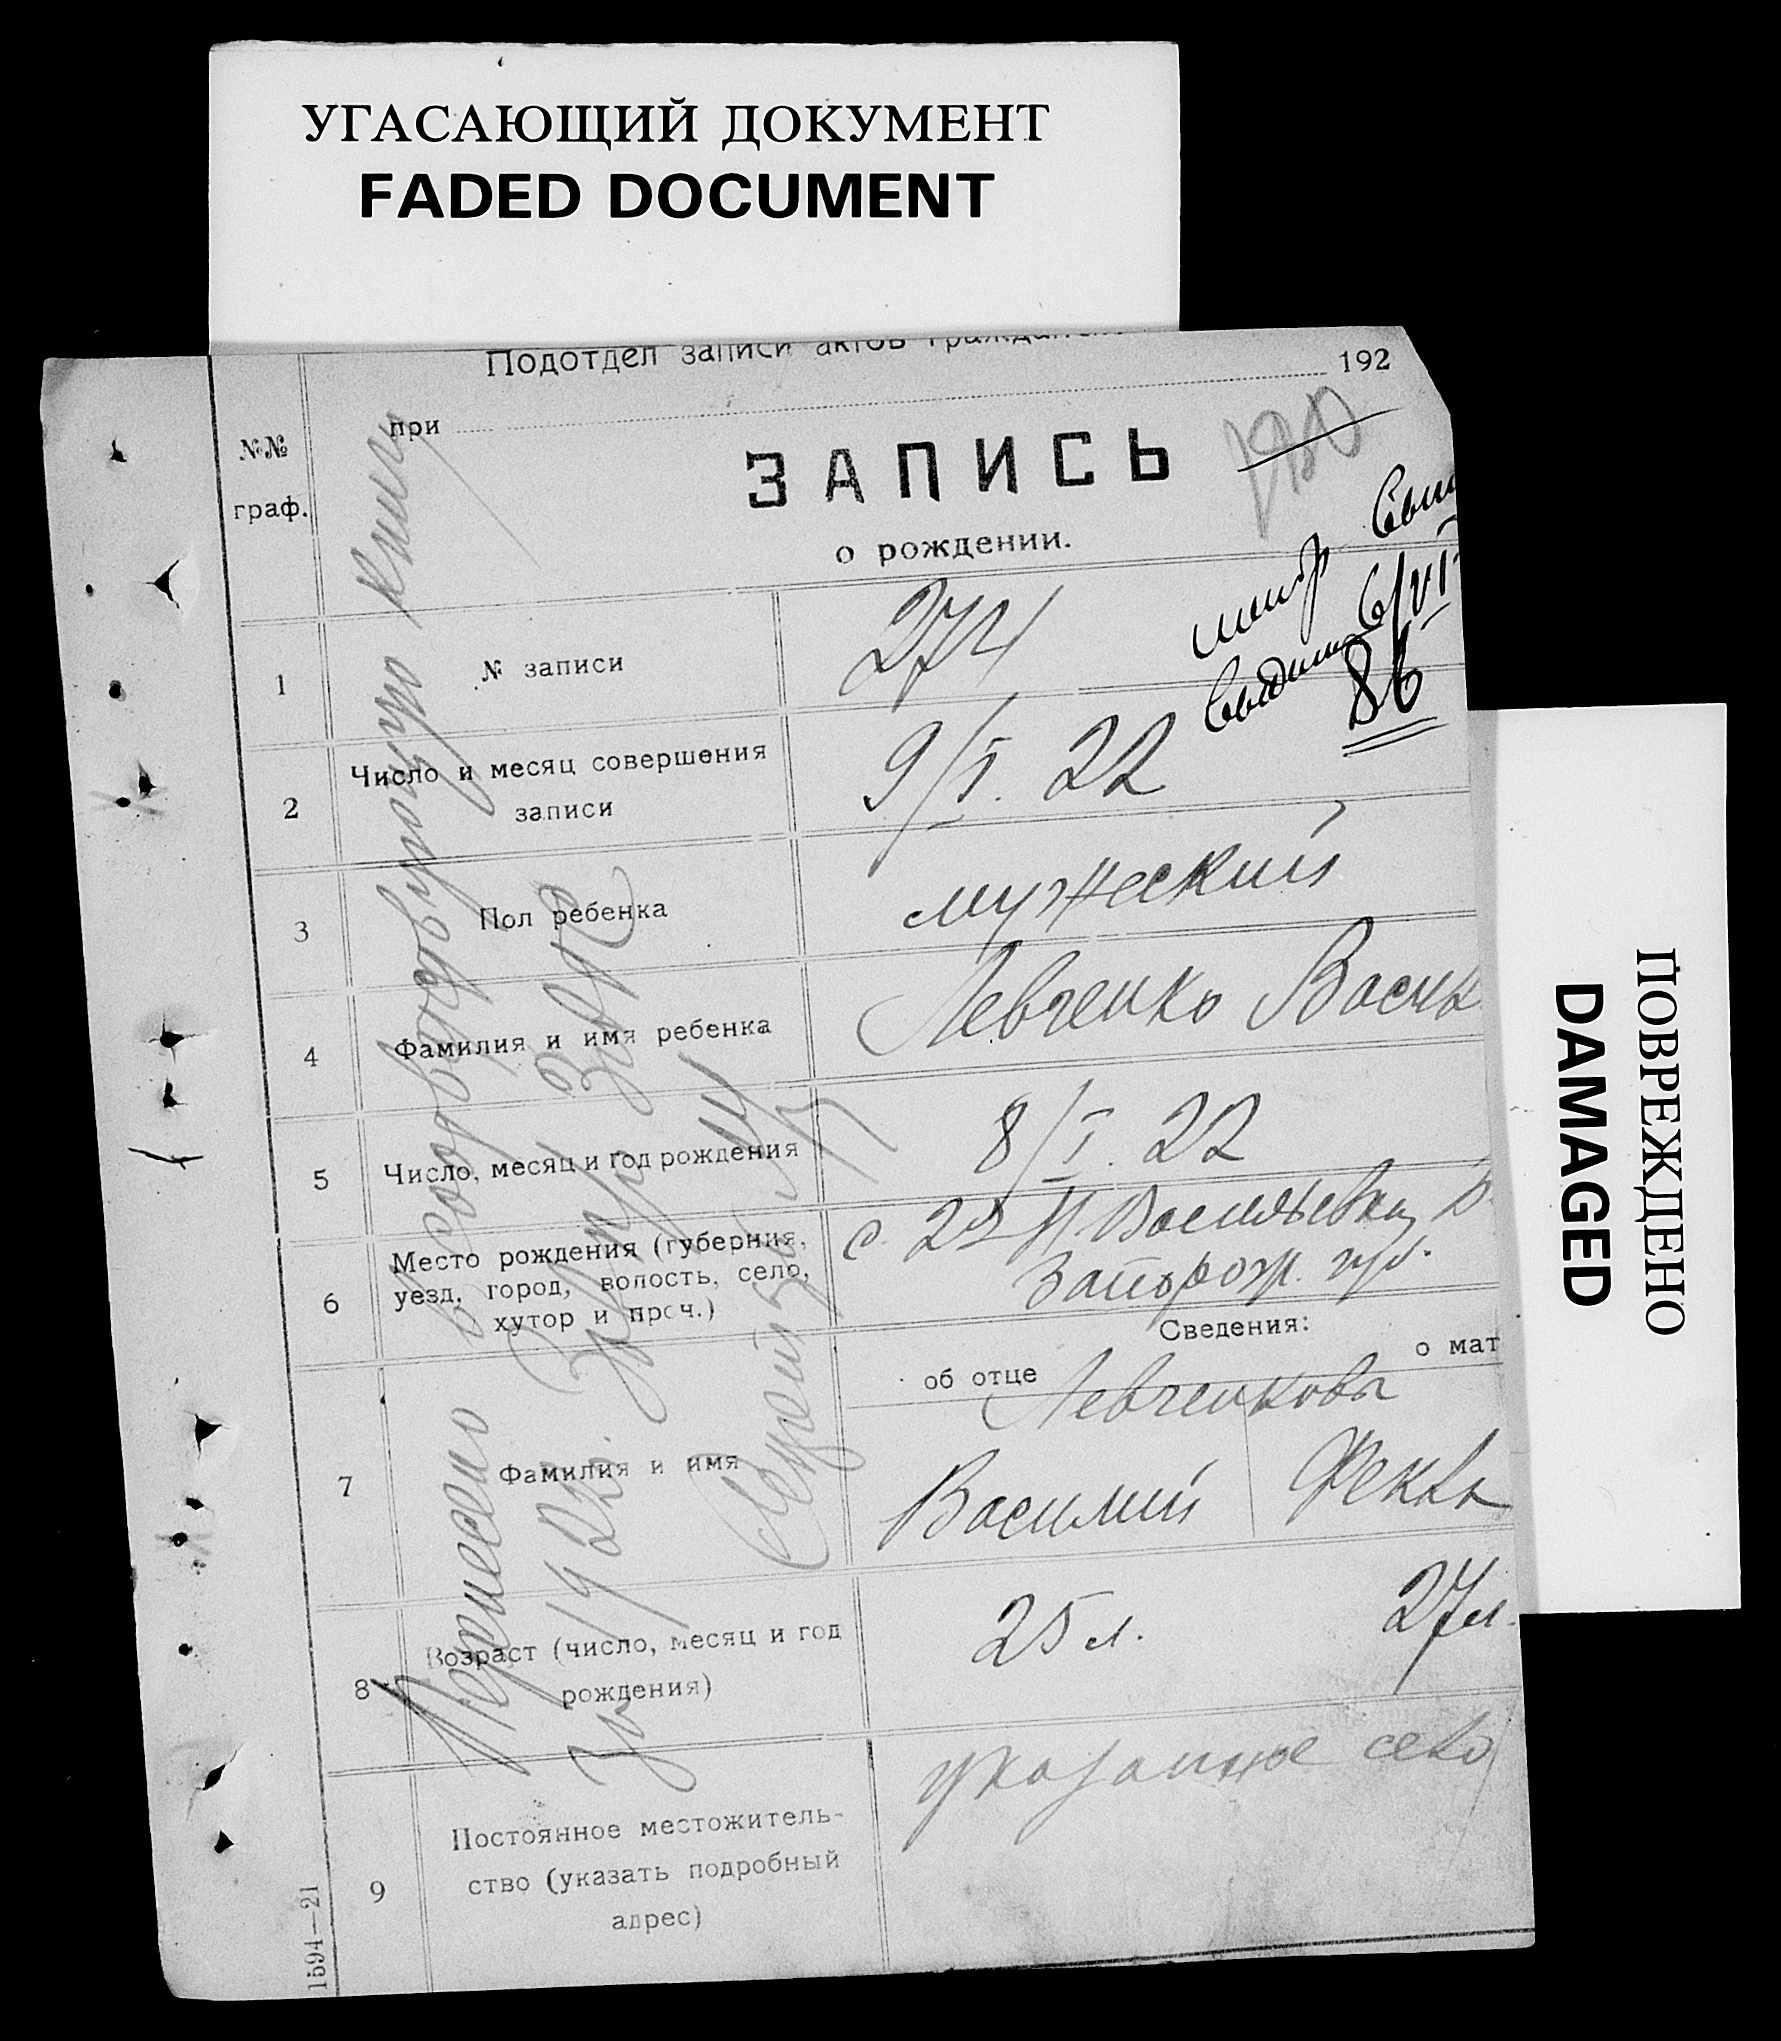 УГАСАЮЩИЙ ДОКУМЕНТ
FADED DOCUMENT
Подотдел записи актов
192
при
№№
граф.
ЗАПИСЬ
о рождении.
1
№ записи
274
86
6/VI
2
Число и месяц совершения
записи
9/I. 22
3
Пол ребенка
мужеский
4
Фамилия и имя ребенка
Левченко
5
Число, месяц и год рождения
8/I. 22
6
Место рождения (губерния,
уезд, город, волость, село,
хутор и проч.)
с. 2я Н. Васильевка
Запорож. губ.
Сведения:
об отце
о мат
Левченковы
7
Фамилия и имя
Василий
Фекла
8
Возраст (число, месяц и год
рождения)
25 л.
27 л.
9
Постоянное местожитель-
ство (указать подробный
адрес)
указанное село
1594—21
Перенесено в соответствующую книгу
за 1922
ПОВРЕЖДЕНО
DAMAGED